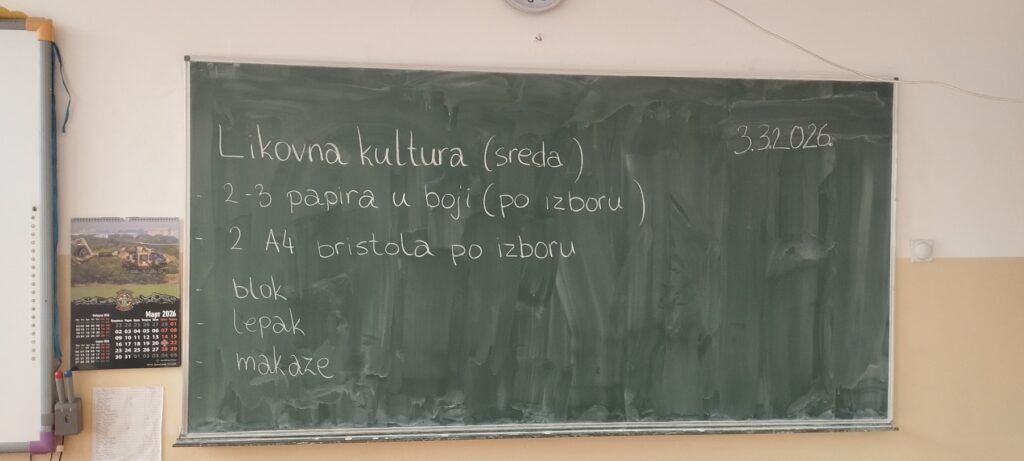 Likovna kultura (sreda)
3.3.2026.
- 2-3 papira u boji (po izboru)
- 2 A4 bristola po izboru
- blok
- lepak
- makaze
-
Март 2026